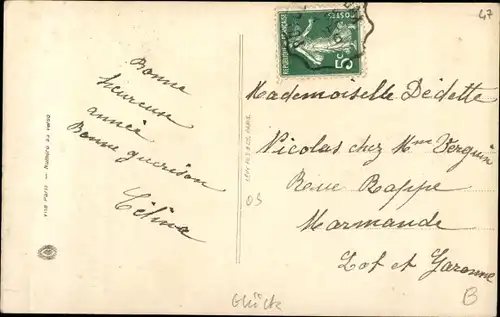 47
RÉPUBLIQUE FRANÇAISE
POSTES
5c
Bonne
heureuse
année
Bonne guérison
Célina
Mademoiselle Dédette
Nicolas chez Mme Verguin
Rue Rappe
Marmande
Lot et Garonne
Glück
B